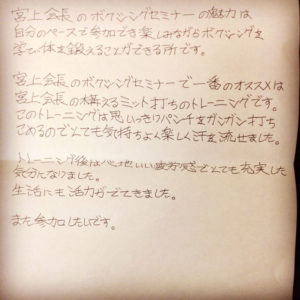 宮上会長のボクシングセミナーの魅力は
自分のペースで参加でき楽しみながらボクシングを
学び体を鍛えることができる所です。
宮上会長のボクシングセミナーで一番のオススメは
宮上会長の構えるミット打ちのトレーニングです。
このトレーニングは思いっきりパンチをガンガン打ち
こめるのでとても気持ちよく楽しく汗を流せました。
トレーニング後は心地いい疲労感でとても充実した
気分になりました。
生活にも活力がでてきました。
また参加したいです。